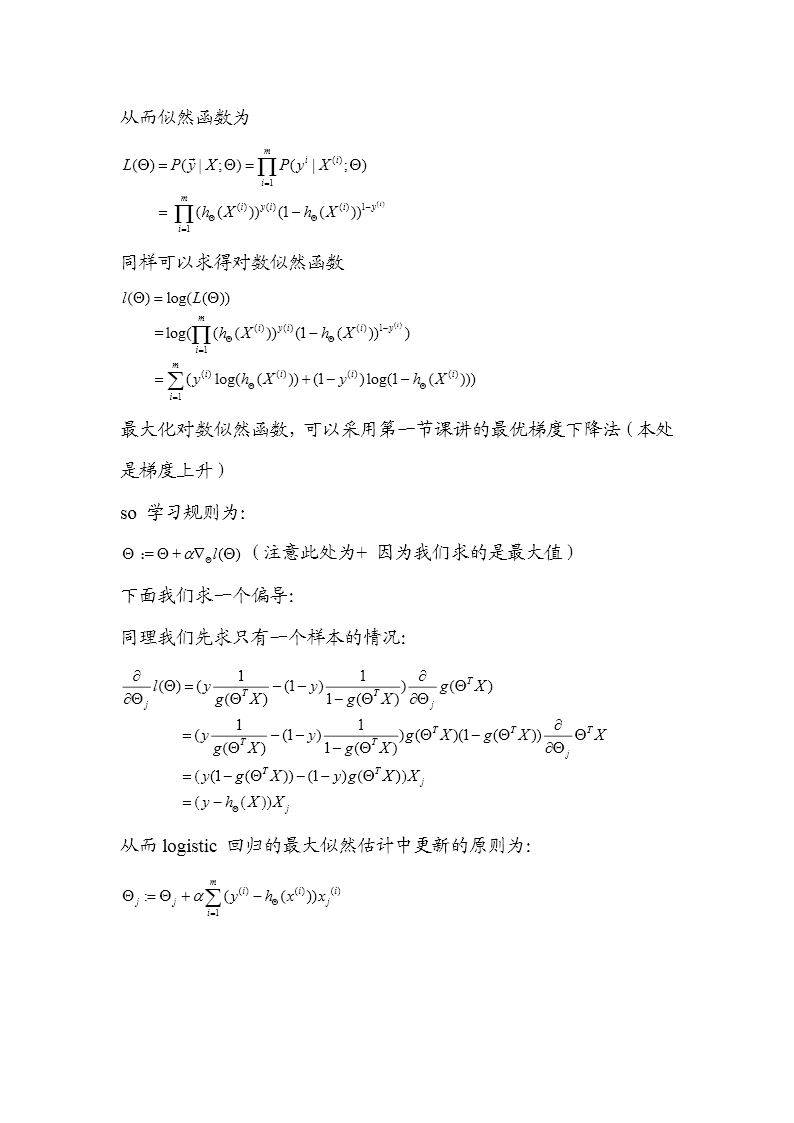 从而似然函数为
L(Θ) = P(y⃗ | X; Θ) = ∏_{i=1}^{m} P(y^i | X^{(i)}; Θ)
= ∏_{i=1}^{m} (h_Θ(X^{(i)}))^{y(i)} (1 − h_Θ(X^{(i)}))^{1−y^{(i)}}
同样可以求得对数似然函数
l(Θ) = log(L(Θ))
= log(∏_{i=1}^{m} (h_Θ(X^{(i)}))^{y(i)} (1 − h_Θ(X^{(i)}))^{1−y^{(i)}})
= ∑_{i=1}^{m} (y^{(i)} log(h_Θ(X^{(i)})) + (1 − y^{(i)}) log(1 − h_Θ(X^{(i)})))
最大化对数似然函数,可以采用第一节课讲的最优梯度下降法(本处
是梯度上升)
so 学习规则为:
Θ := Θ + α∇_Θ l(Θ)(注意此处为+ 因为我们求的是最大值)
下面我们求一个偏导:
同理我们先求只有一个样本的情况:
∂/∂Θ_j l(Θ) = (y 1/g(Θ^T X) − (1 − y) 1/(1 − g(Θ^T X))) ∂/∂Θ_j g(Θ^T X)
= (y 1/g(Θ^T X) − (1 − y) 1/(1 − g(Θ^T X))) g(Θ^T X)(1 − g(Θ^T X)) ∂/∂Θ_j Θ^T X
= (y(1 − g(Θ^T X)) − (1 − y)g(Θ^T X))X_j
= (y − h_Θ(X))X_j
从而 logistic 回归的最大似然估计中更新的原则为:
Θ_j := Θ_j + α∑_{i=1}^{m} (y^{(i)} − h_Θ(x^{(i)}))x_j^{(i)}